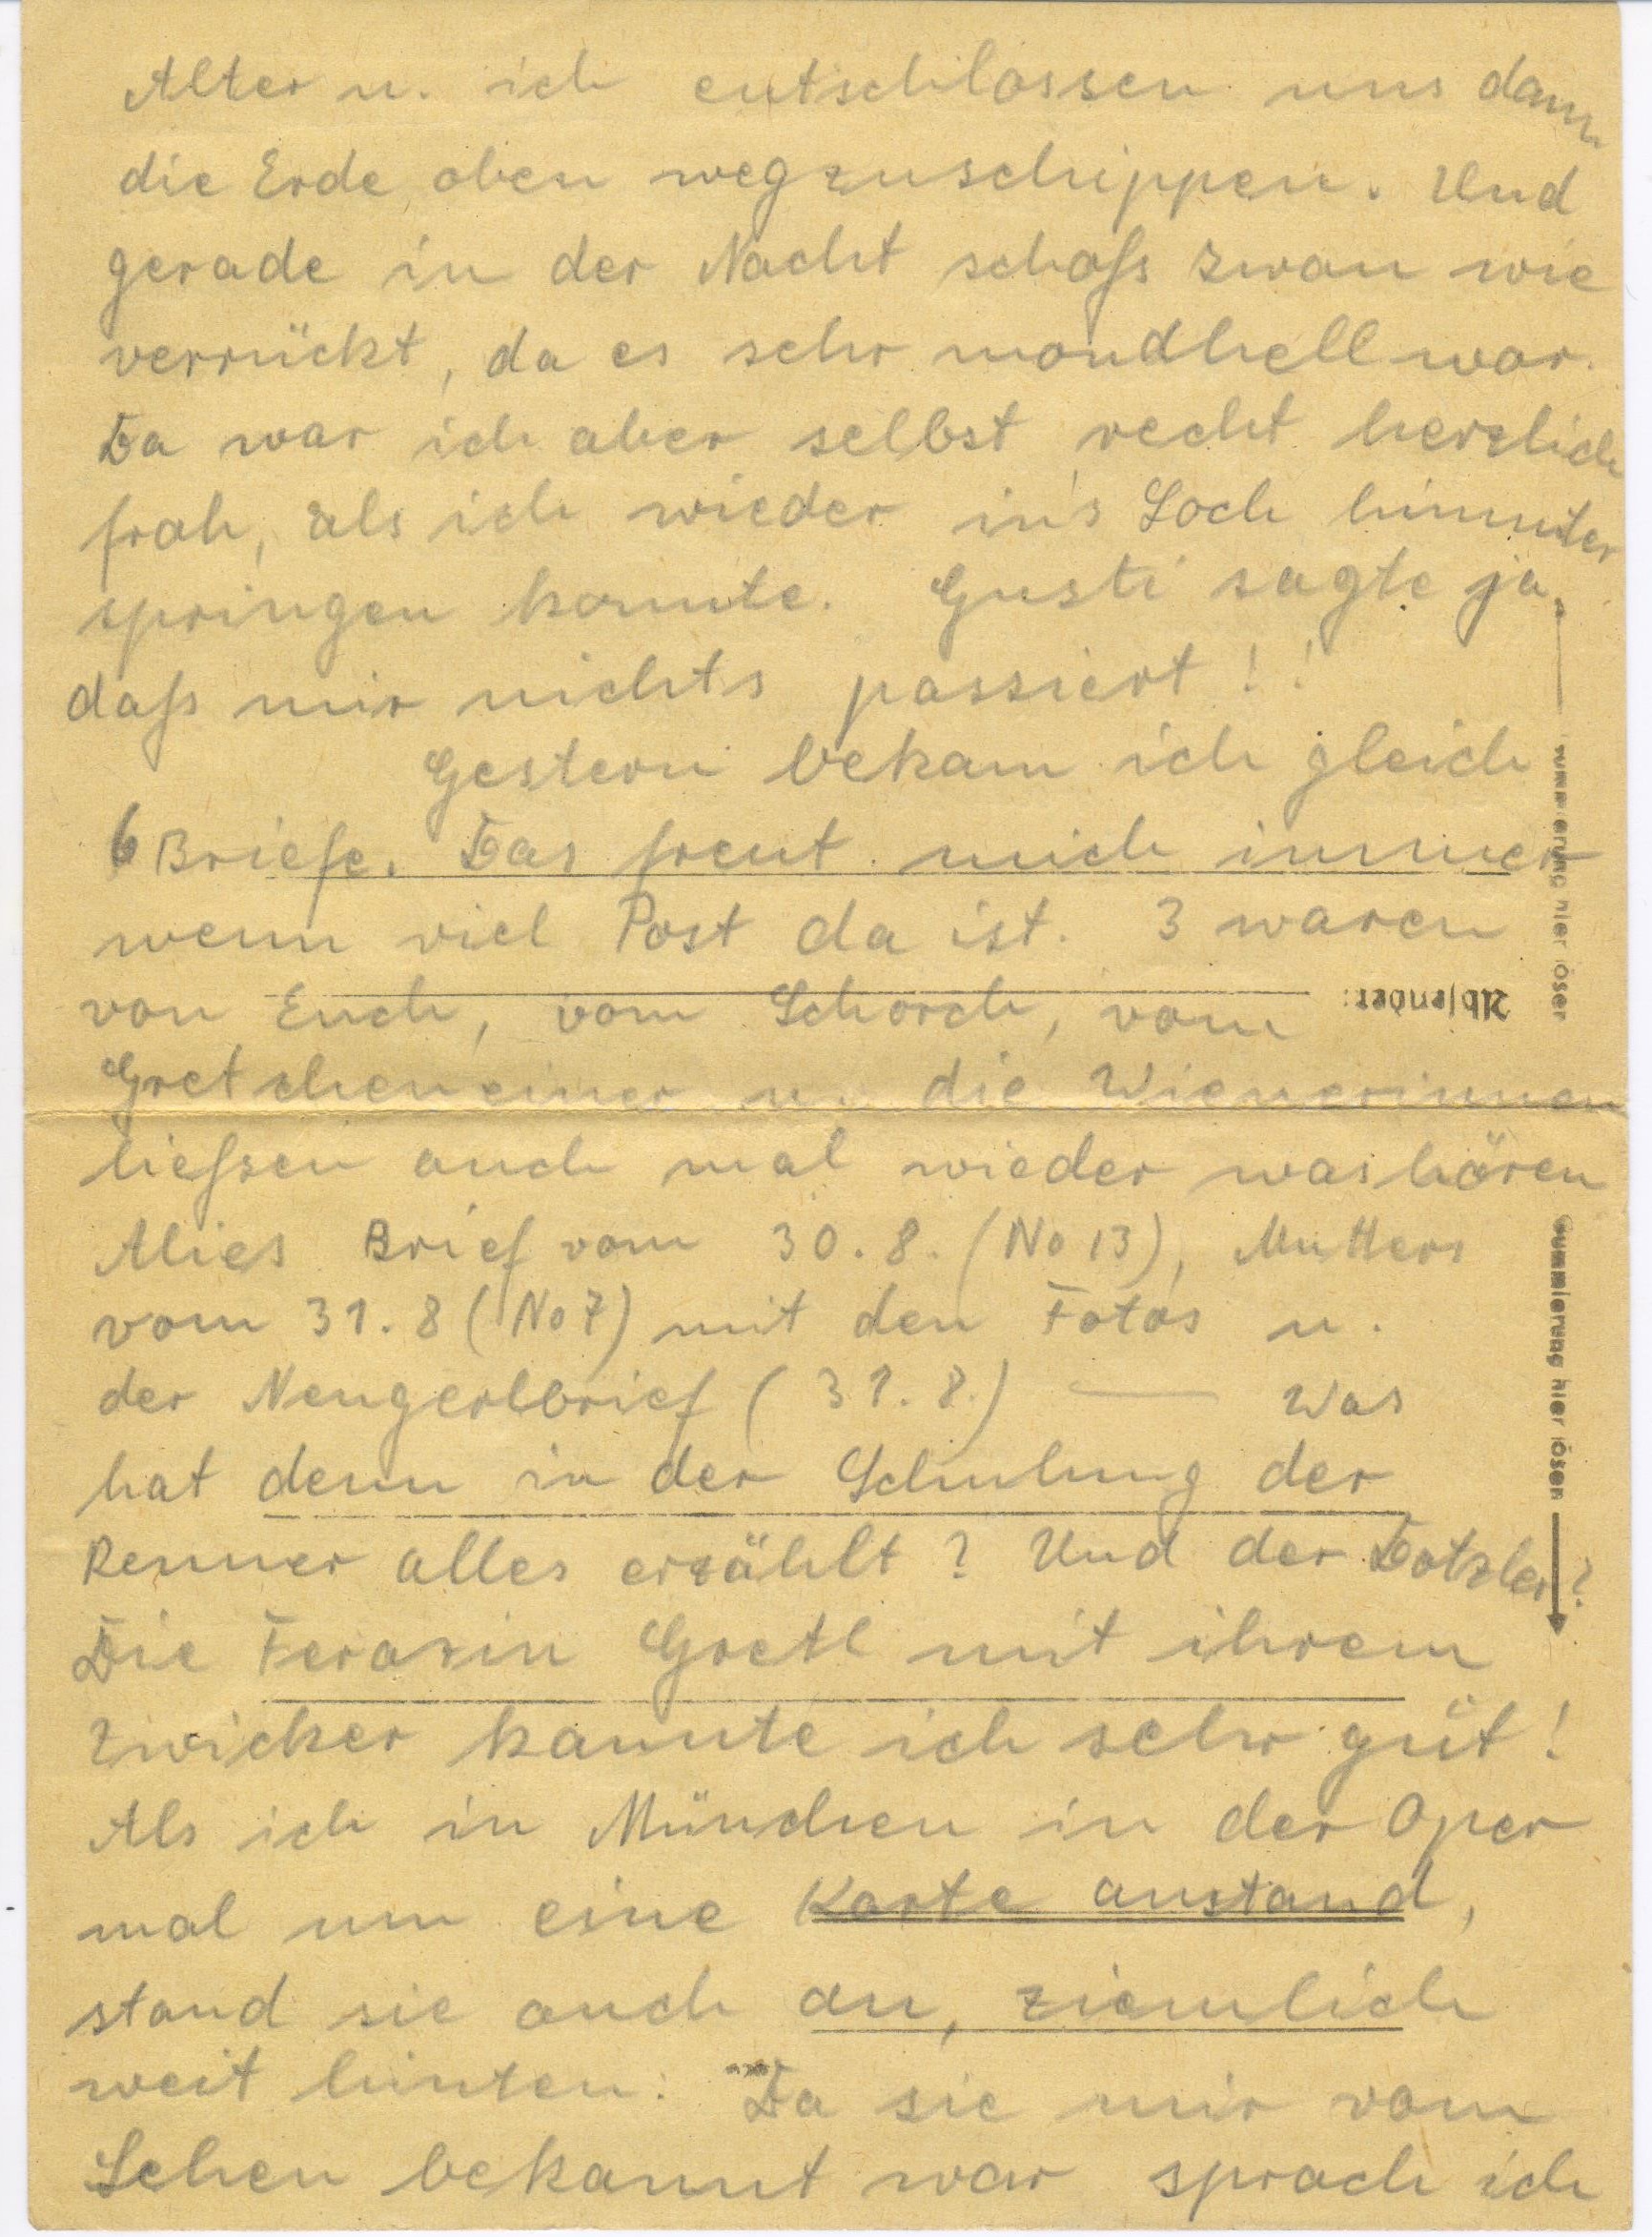 Alter u. ich entschlossen uns dann
die Erde oben wegzuschippen. Und
gerade in der Nacht schoß Iwan wie
verrückt, da es sehr mondhell war.
Da war ich aber selbst recht herzlich
froh, als ich wieder in's Loch hinunter
springen konnte. Gusti sagte ja,
daß mir nichts passiert!!
Gestern bekam ich gleich
6 Briefe. Das freut mich immer
wenn viel Post da ist. 3 waren
von Euch, vom Schorch, vom
Gretchen einer u. die Wienerinnen
ließen auch mal wieder was hören
Mies Brief vom 30.8. (No 13), Mutters
vom 31.8 (No 7) mit den Fotos u.
der Neugerlbrief (31.8.) — Was
hat denn in der Schulung der
Renner alles erzählt? Und der Dotzler?
Die Ferazin Gretl mit ihrem
Zwicker kannte ich sehr gut!
Als ich in München in der Oper
mal um eine Karte anstand,
stand sie auch an, ziemlich
weit hinten. Da sie mir vom
Sehen bekannt war sprach ich
Absender:
Gummierung hier lösen
Gummierung hier lösen